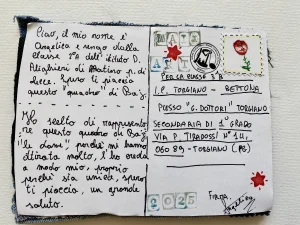 Ciao, il mio nome è
Angelica e vengo dalla
classe 1ª dell'istituto D.
Alighieri di Matino p. di
Lecce. Spero ti piaccia
questo "quadro" di
Ho scelto di rappresenta
re questo quadro di
"le dame" perché mi hanno
attirato molto, l'ho creato
a modo mio, proprio
perché sia unico, spero
ti piaccia, un grande
saluto.
MAIL
ART
PER LA CLASSE 3ªB
I.C. TORGIANO - BETTONA
PRESSO "G. DOTTORI" TORGIANO
SECONDARIA DI 1° GRADO
VIA P. TIRADOSSI N° 14,
06089 - TORGIANO (PG)
Firma
Angelica
2025